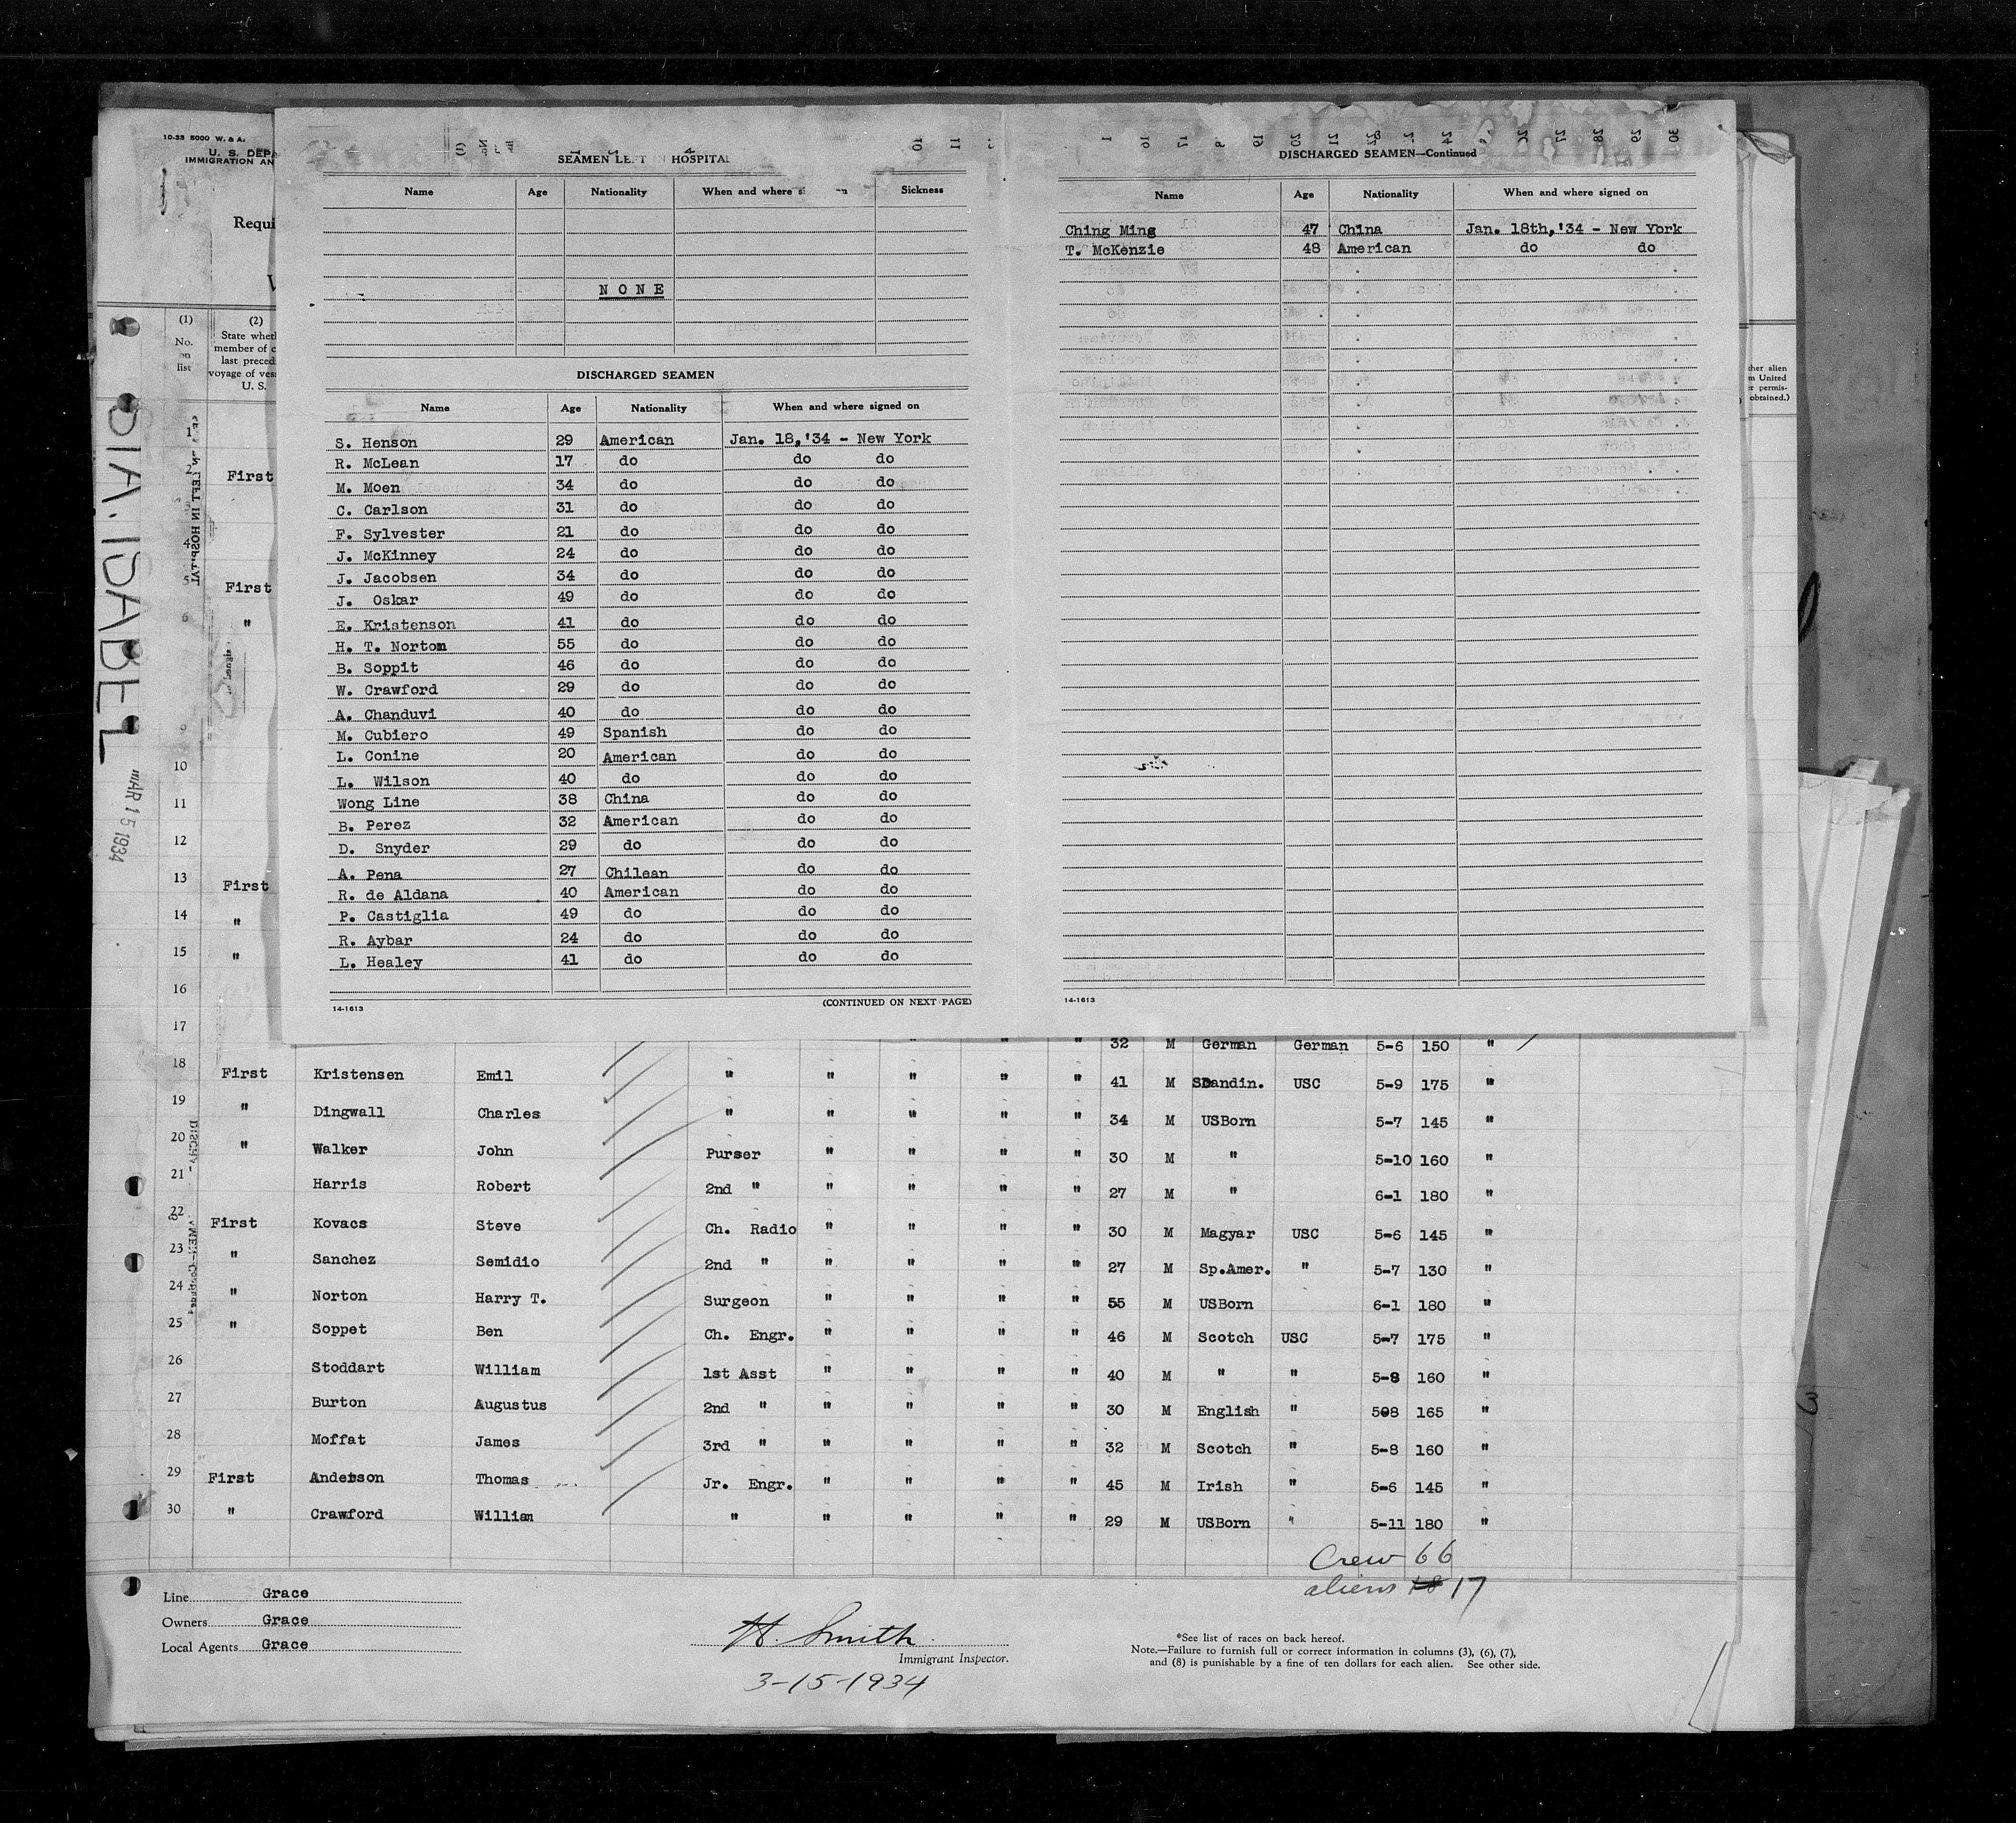 10-33 5000 W. & A.
U. S. DEPA
IMMIGRATION AN
Requi
(1)
No. on list
(2)
State wheth
member of c
last preced
voyage of ves
U. S.
STA. ISABEL
MAR 15 1934
SEAMEN LEFT IN HOSPITAL
Name Age Nationality When and where Sickness
NONE
DISCHARGED SEAMEN
Name Age Nationality When and where signed on
S. Henson 29 American Jan. 18,'34 - New York
R. McLean 17 do do do
M. Moen 34 do do do
C. Carlson 31 do do do
F. Sylvester 21 do do do
J. McKinney 24 do do do
J. Jacobsen 34 do do do
J. Oskar 49 do do do
E. Kristenson 41 do do do
H. T. Nortom 55 do do do
B. Soppit 46 do do do
W. Crawford 29 do do do
A. Chanduvi 40 do do do
M. Cubiero 49 Spanish do do
L. Conine 20 American do do
L. Wilson 40 do do do
Wong Line 38 China do do
B. Perez 32 American do do
D. Snyder 29 do do do
A. Pena 27 Chilean do do
R. de Aldana 40 American do do
P. Castiglia 49 do do do
R. Aybar 24 do do do
L. Healey 41 do do do
14-1613 (CONTINUED ON NEXT PAGE)
DISCHARGED SEAMEN—Continued
Name Age Nationality When and where signed on
Ching Ming 47 China Jan. 18th,'34 - New York
T. McKenzie 48 American do do
14-1613
her alien
m United
r permis-
obtained.)
1
2 First
4
5 First
6 "
9
10
11
12
13 First
14 "
15 "
16
17 " " " 32 M German German 5-6 150 "
18 First Kristensen Emil " " " " " 41 M Scandin. USC 5-9 175 "
19 " Dingwall Charles " " " " " 34 M USBorn 5-7 145 "
20 " Walker John Purser " " " " 30 M " 5-10 160 "
21 Harris Robert 2nd " " " " " 27 M " 6-1 180 "
22 First Kovacs Steve Ch. Radio " " " " 30 M Magyar USC 5-6 145 "
23 " Sanchez Semidio 2nd " " " " " 27 M Sp.Amer. " 5-7 130 "
24 " Norton Harry T. Surgeon " " " " 55 M USBorn 6-1 180 "
25 " Soppet Ben Ch. Engr. " " " " 46 M Scotch USC 5-7 175 "
26 Stoddart William 1st Asst " " " " 40 M " " 5-8 160 "
27 Burton Augustus 2nd " " " " " 30 M English " 508 165 "
28 Moffat James 3rd " " " " " 32 M Scotch " 5-8 160 "
29 First Anderson Thomas Jr. Engr. " " " " 45 M Irish " 5-6 145 "
30 " Crawford William " " " " " 29 M USBorn " 5-11 180 "
Crew 66
aliens 18 17
Line Grace
Owners Grace
Local Agents Grace
H. Smith
Immigrant Inspector.
3-15-1934
*See list of races on back hereof.
Note.—Failure to furnish full or correct information in columns (3), (6), (7),
and (8) is punishable by a fine of ten dollars for each alien. See other side.